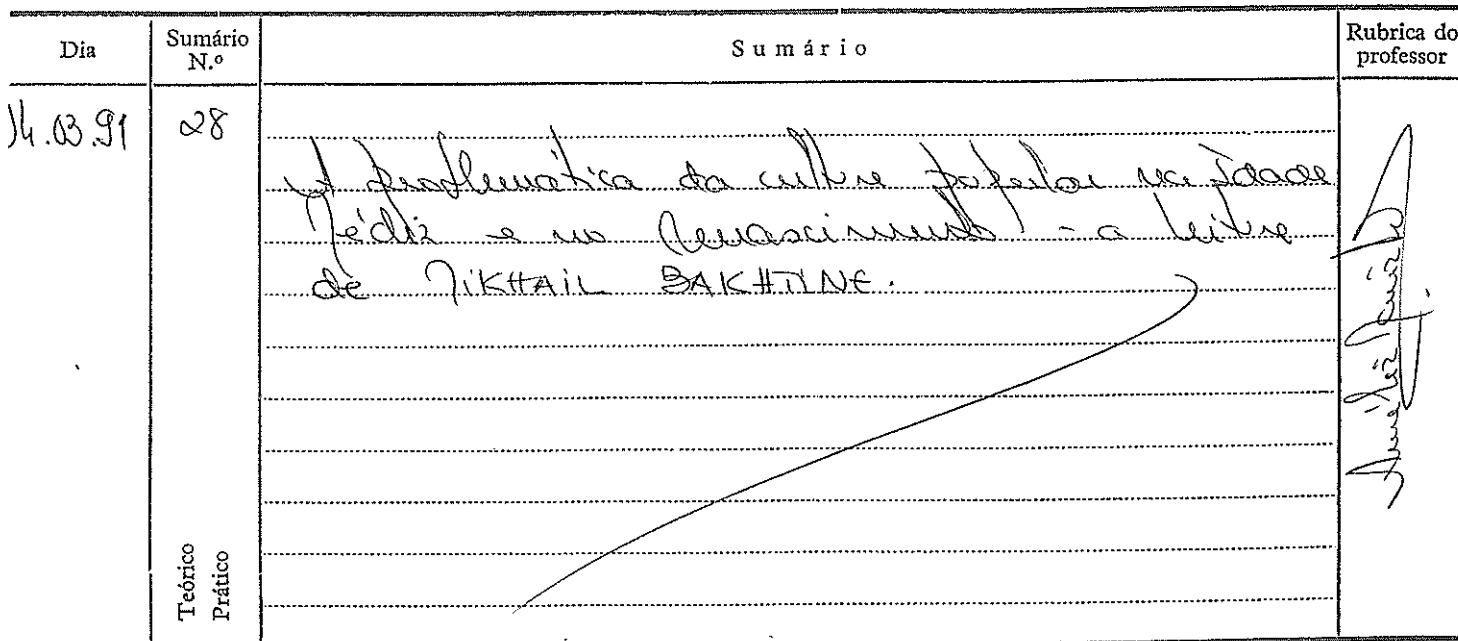 Dia
Sumário N.º
Sumário
Rubrica do professor
14.03.91
28
A problemática da cultura popular na Idade
Média e no Renascimento - a leitura
de MIKHAIL BAKHTINE.
Teórico
Prático